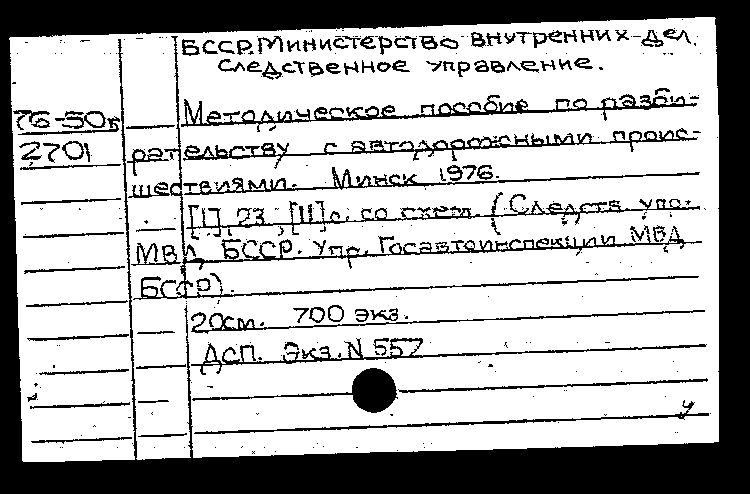 БССР. Министерство внутренних дел.
Следственное управление.
76-50к
2701
Методическое пособие по разби-
рательству с автодорожными проис-
шествиями. Минск, 1976.
[1], 23, [11] с. со схем. (Следств. упр.
МВД БССР. Упр. Госавтоинспекции МВД
БССР).
20см. 700 экз.
ДСП. Экз. N 557